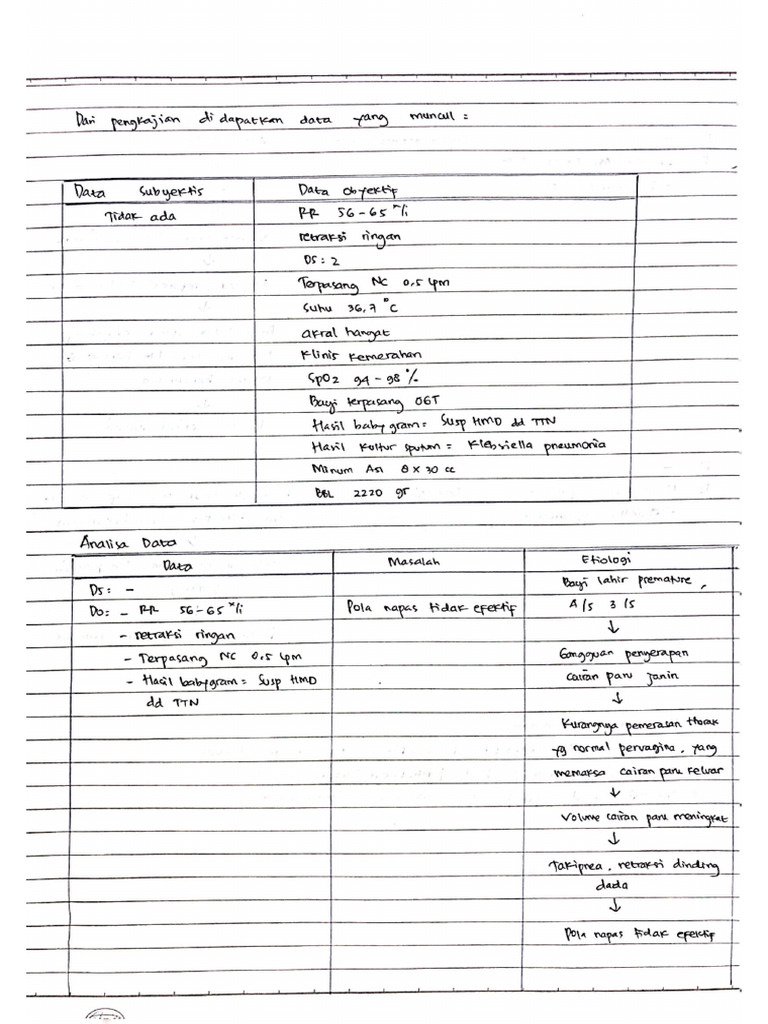 Dari pengkajian di dapatkan data yang muncul :
Data Subyektis
Data Obyektif
Tidak ada
RR 56-65 x/i
retraksi ringan
DS : 2
Terpasang NC 0,5 lpm
Suhu 36,7 °C
akral hangat
Klinis kemerahan
SpO2 94 - 98 %
Bayi terpasang OGT
Hasil baby gram = Susp HMD dd TTN
Hasil Kultur sputum = Klebsiella pneumonia
Minum Asi 8 x 30 cc
BBL 2220 gr
Analisa Data
Data
Masalah
Etiologi
DS : -
DO : - RR 56-65 x/i
- retraksi ringan
- Terpasang NC 0,5 lpm
- Hasil babygram = Susp HMD
dd TTN
Pola napas tidak efektif
Bayi lahir premature,
A/S 3/5
↓
Gangguan penyerapan
cairan paru janin
↓
Kurangnya pemerasan thorak
yg normal pervagina, yang
memaksa cairan paru keluar
↓
Volume cairan paru meningkat
↓
Takipnea, retraksi dinding
dada
↓
Pola napas tidak efektif